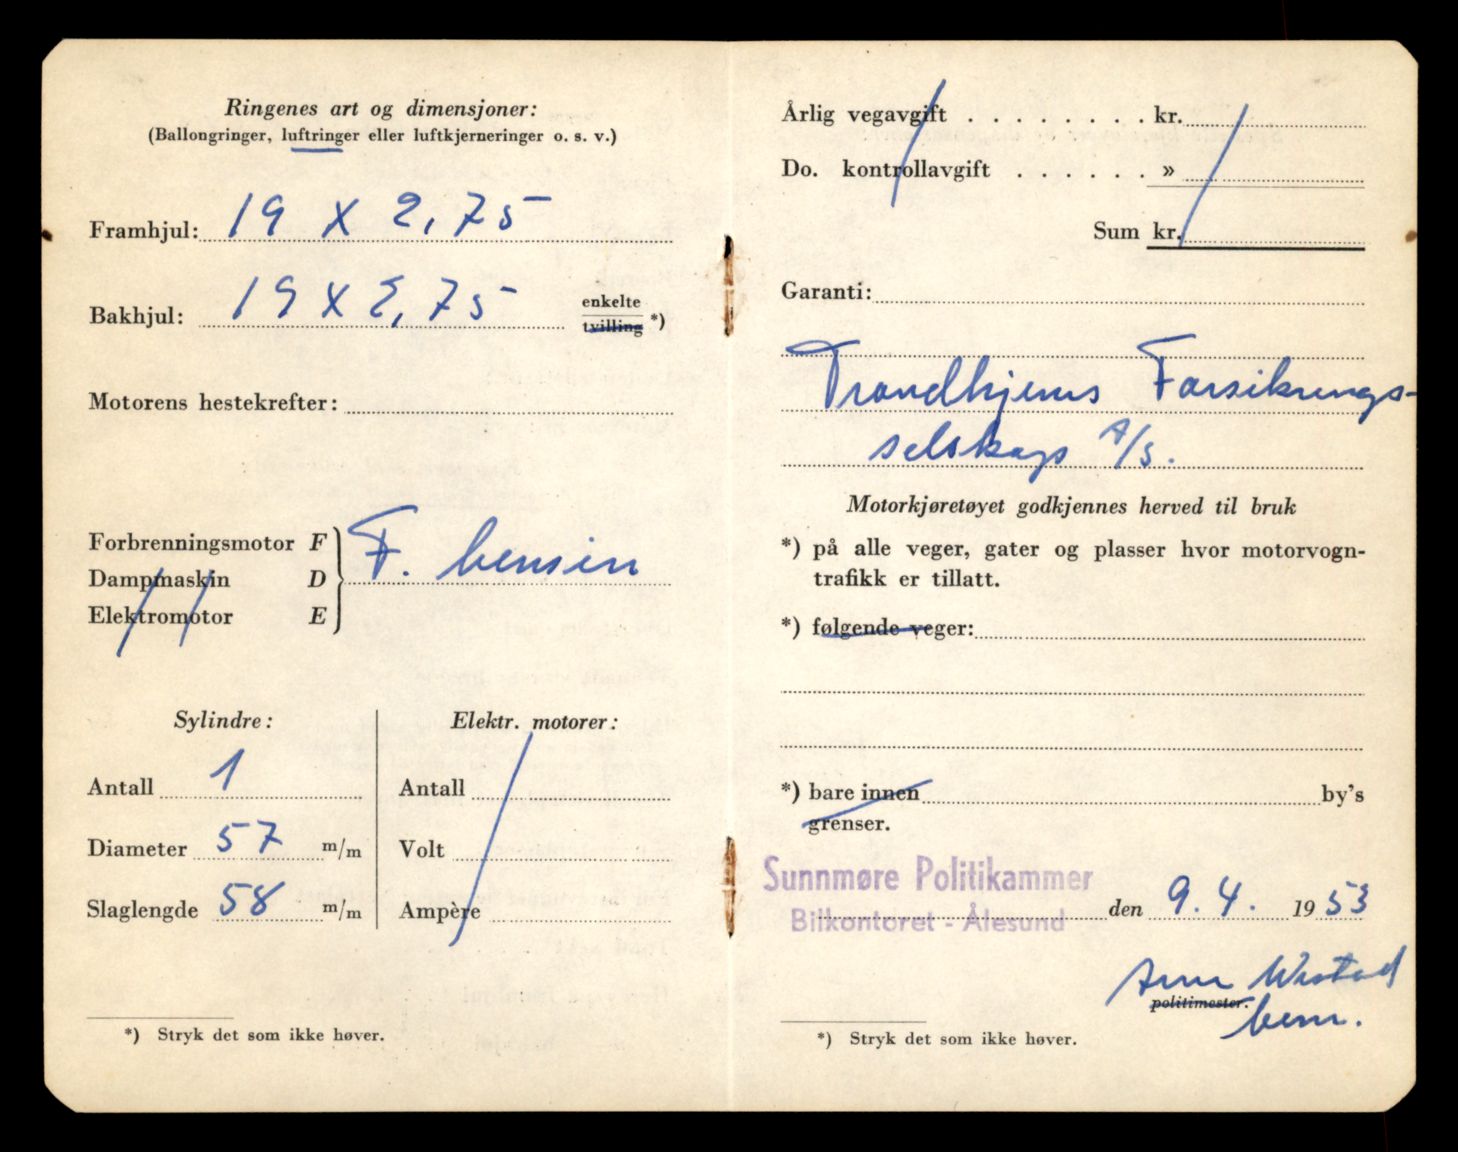 Ringenes art og dimensjoner:
(Ballongringer, luftringer eller luftkjerneringer o. s. v.)
Framhjul: 19 x 2,75
Bakhjul: 19 x 2,75 enkelte
tvilling *)
Motorens hestekrefter:
Forbrenningsmotor F
Dampmaskin D
Elektromotor E
F. bensin
Sylindre:
Antall 1
Diameter 57 m/m
Slaglengde 58 m/m
Elektr. motorer:
Antall
Volt
Ampère
*) Stryk det som ikke høver.
Årlig vegavgift . . . . . . . . kr.
Do. kontrollavgift . . . . . . »
Sum kr.
Garanti:
Trondhjems Forsikrings-
selskaps A/S.
Motorkjøretøyet godkjennes herved til bruk
*) på alle veger, gater og plasser hvor motorvogn-
trafikk er tillatt.
*) følgende veger:
*) bare innen by's
grenser.
Sunnmøre Politikammer
Bilkontoret - Ålesund
den 9.4. 1953
Wistad
politimester.
bem.
*) Stryk det som ikke høver.